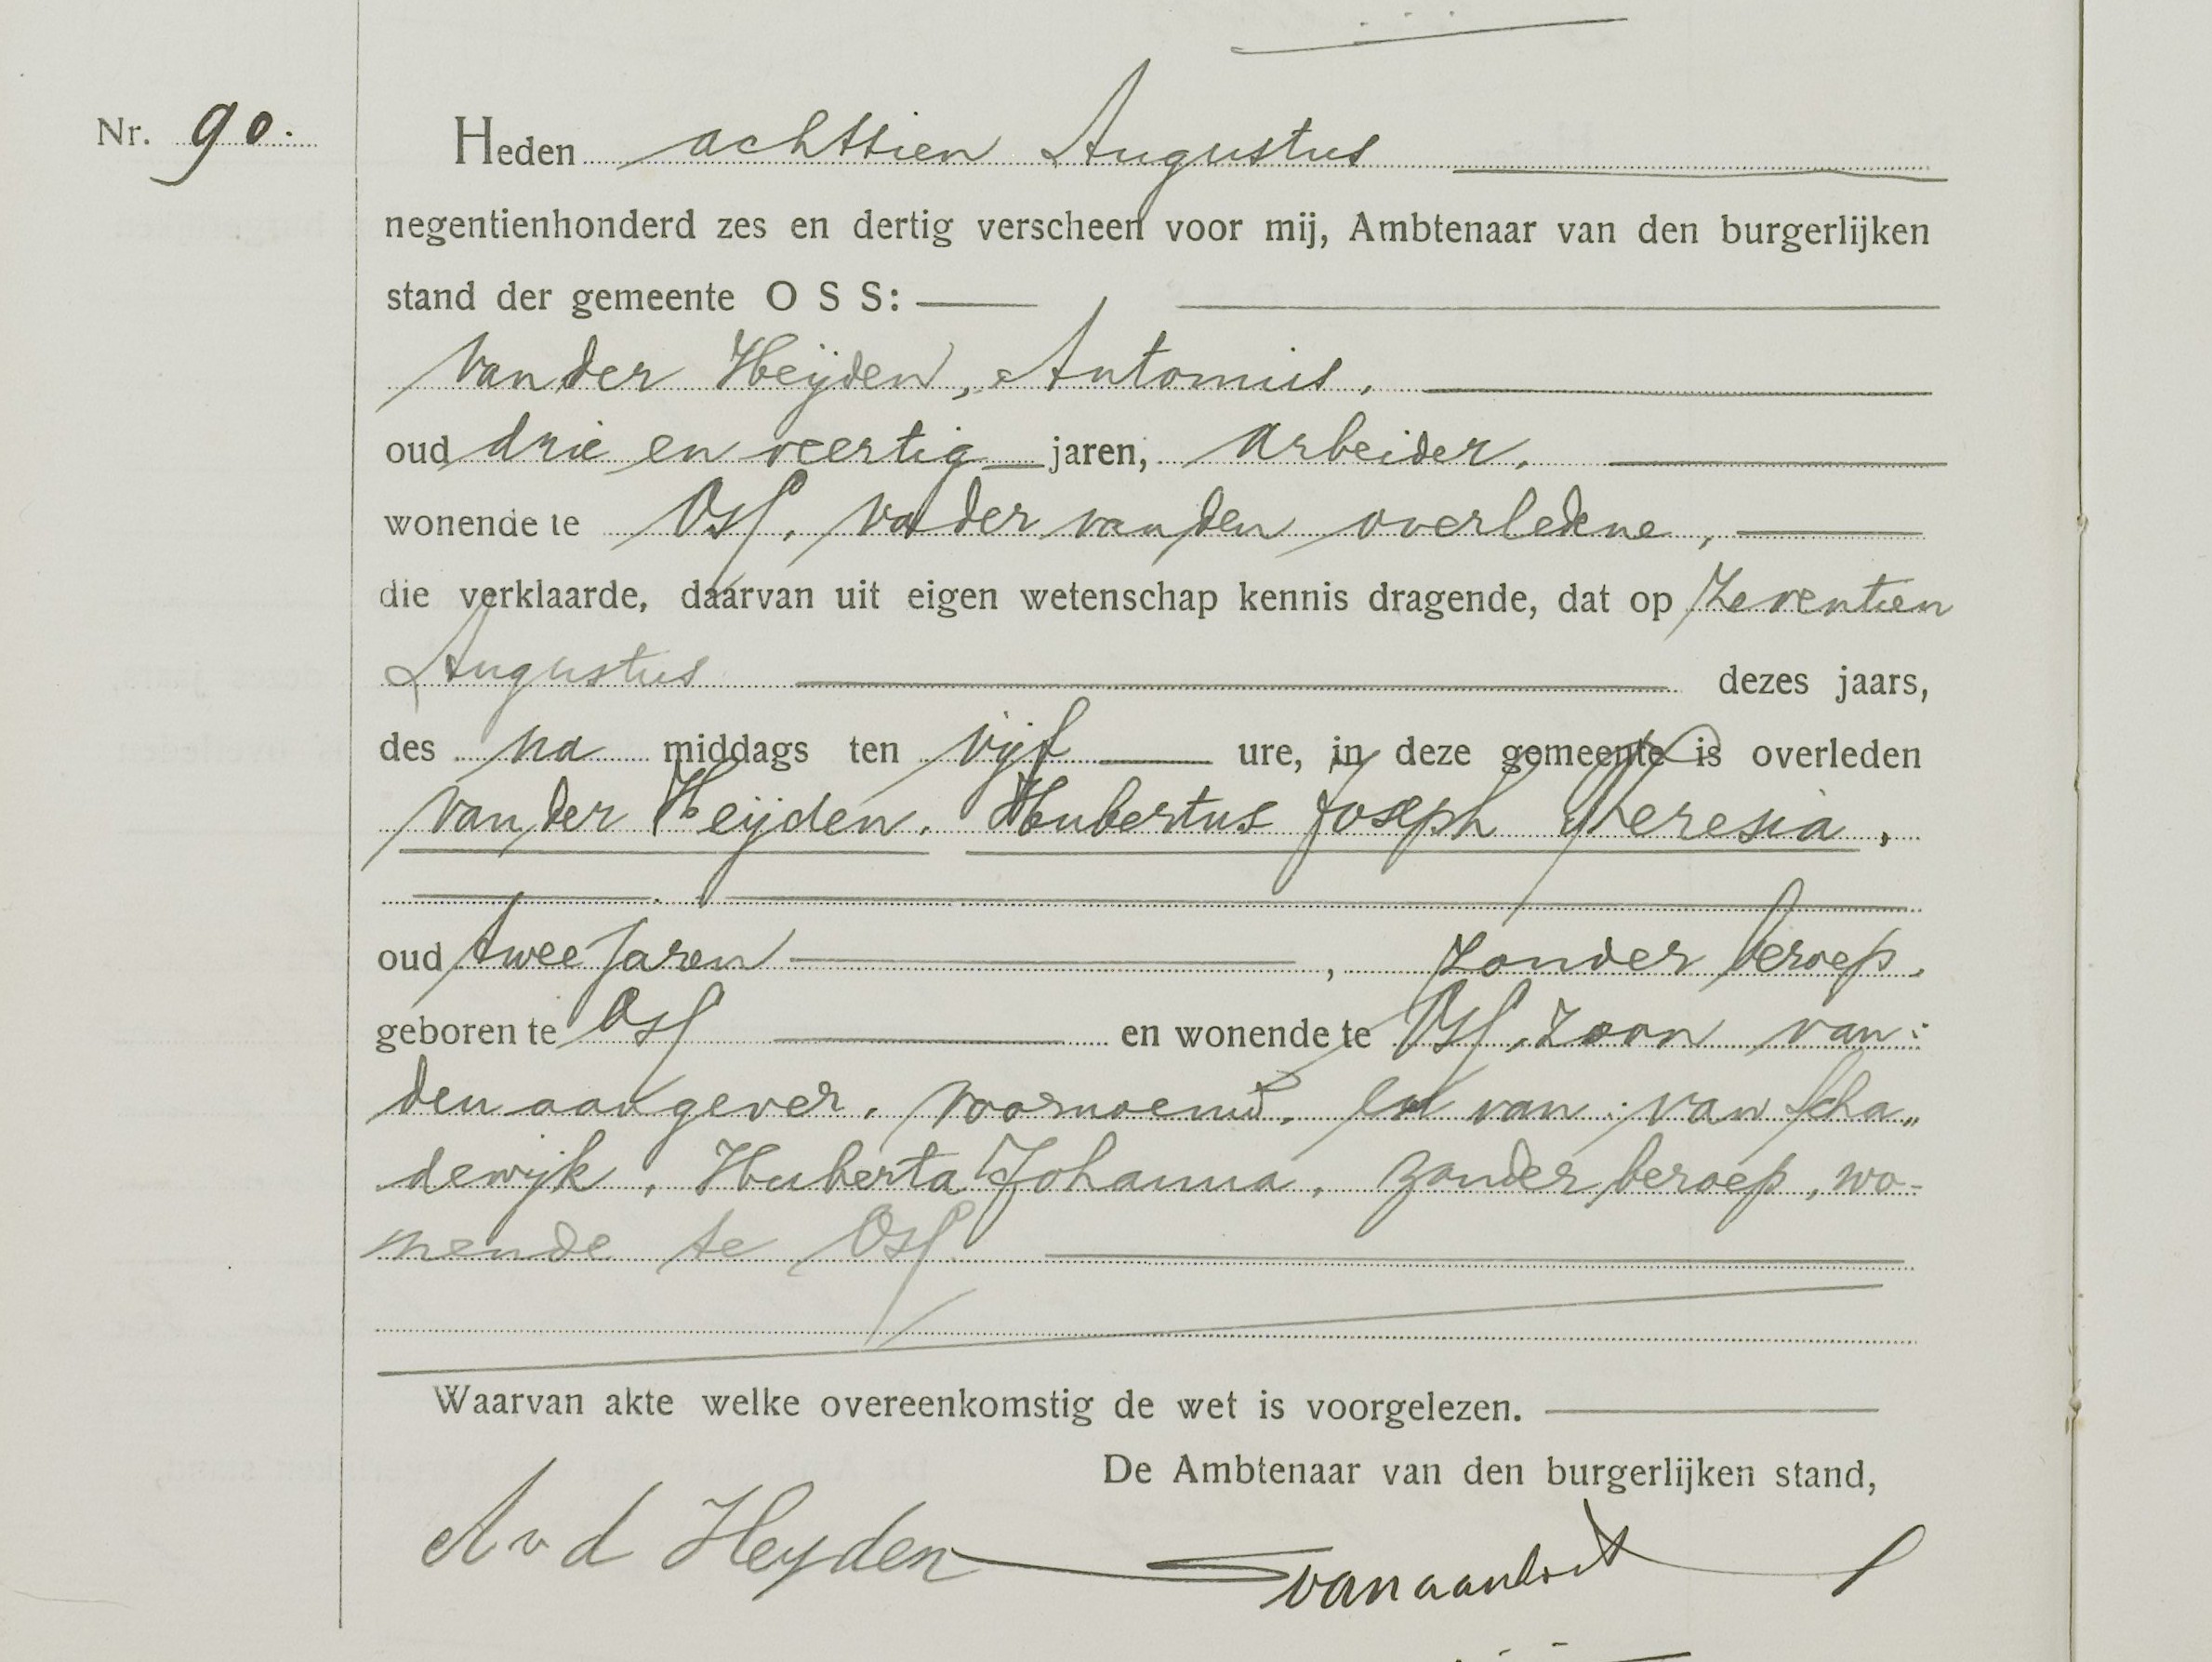 Nr. 90.
Heden achttien Augustus
negentienhonderd zes en dertig verscheen voor mij, Ambtenaar van den burgerlijken
stand der gemeente OSS:
van der Heijden, Antonius,
oud drie en veertig jaren, arbeider,
wonende te Oss, vader van den overledene,
die verklaarde, daarvan uit eigen wetenschap kennis dragende, dat op zeventien
Augustus dezes jaars,
des na middags ten vijf ure, in deze gemeente is overleden
van der Heijden, Hubertus Joseph Theresia,
oud twee jaren, zonder beroep,
geboren te Oss en wonende te Oss, zoon van:
den aangever, voornoemd, en van: van Scha„
dewijk, Huberta Johanna, zonder beroep, wo-
nende te Oss
Waarvan akte welke overeenkomstig de wet is voorgelezen.
De Ambtenaar van den burgerlijken stand,
A v d Heyden